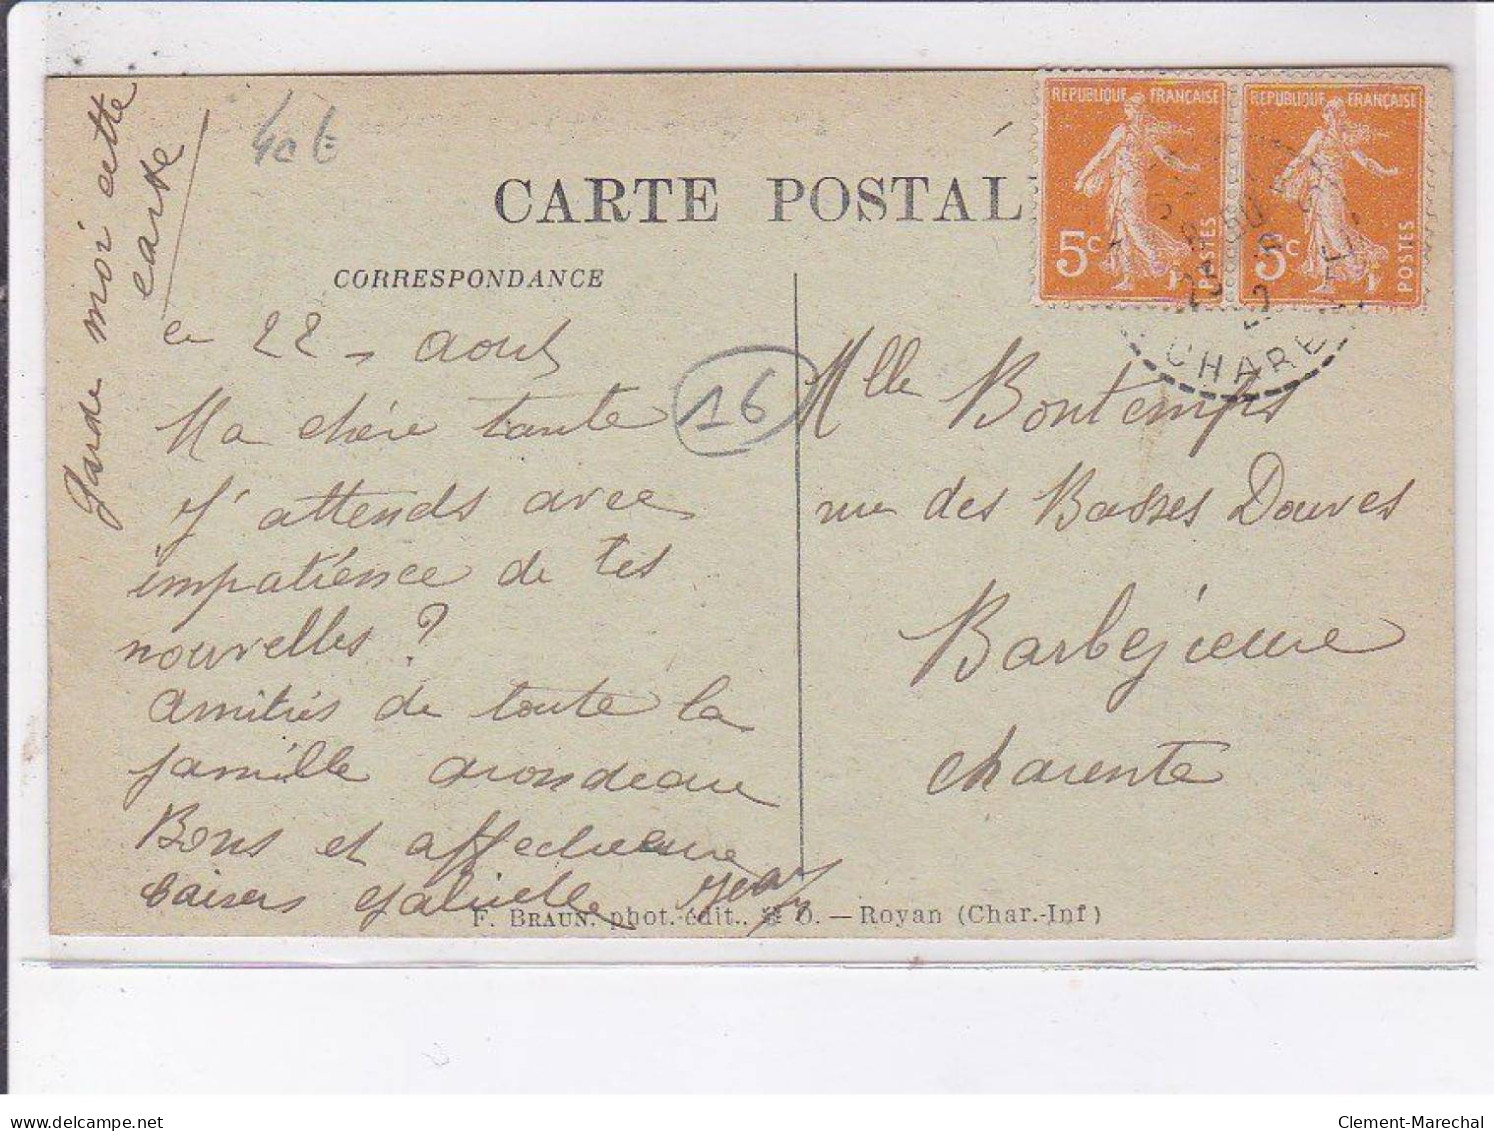 Garde moi cette
carte
40 E
CARTE POSTAL
CORRESPONDANCE
REPUBLIQUE FRANÇAISE
5c
POSTES
REPUBLIQUE FRANÇAISE
5c
POSTES
CHARE
ce 22 - Aout
16
Ma chère tante
J'attends avec
impatience de tes
nouvelles ?
Amitiés de toute la
famille arondeau
Bons et affectueux
baisers Gabrielle
F. BRAUN. phot.-édit., — Royan (Char.-Inf)
Mlle Bontemps
rue des Basses Douves
Barbézieux
Charente
delcampe.net
Clement-Marechal